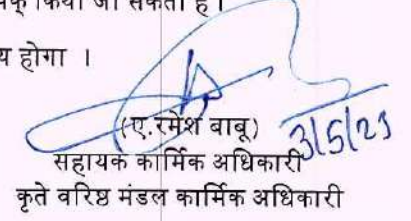 किया जा सकता है।
य होगा ।
(ए.रमेश बाबू) 3/5/23
सहायक कार्मिक अधिकारी
कृते वरिष्ठ मंडल कार्मिक अधिकारी